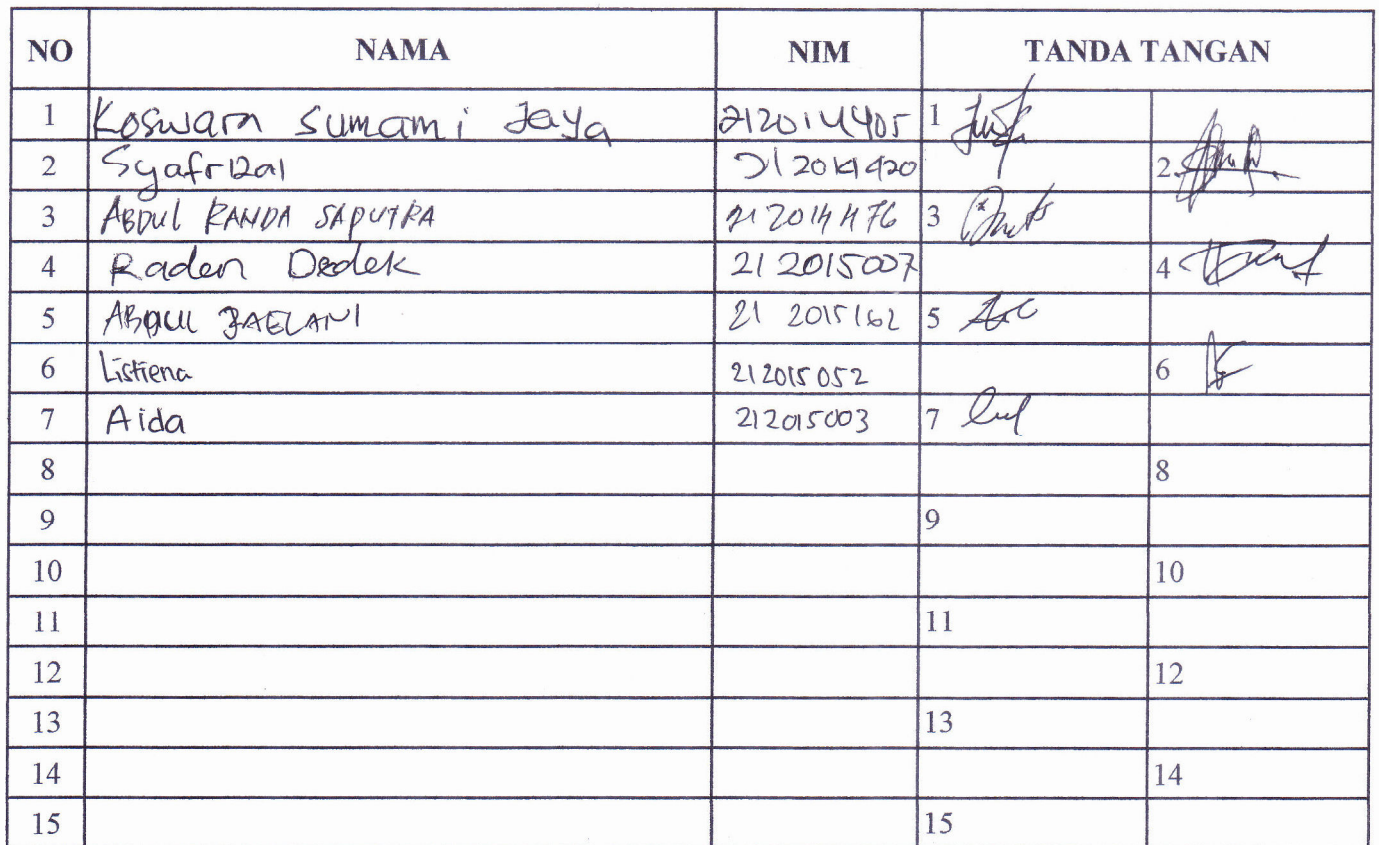 NO NAMA NIM TANDA TANGAN
1 Koswara Sumami Jaya 212014405 1
2 Syafrizal 212014420 2.
3 ABDUL RANDA SAPUTRA 212014476 3
4 Raden Dedek 212015007 4
5 ABDUL ZAELANI 21 2015162 5
6 Listiena 212015052 6
7 Aida 212015003 7
8 8
9 9
10 10
11 11
12 12
13 13
14 14
15 15